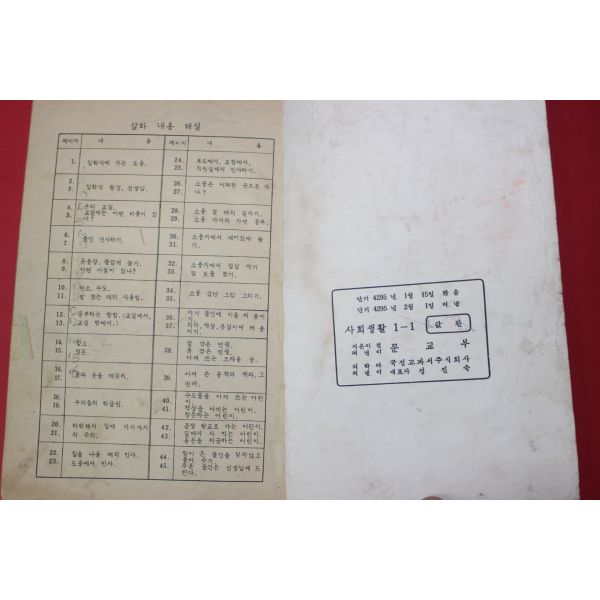 삽화 내용 해설
페이지 내 용 페이지 내 용
1. 입학식에 가는 도중.
2. 3. 입학식 광경, 선생님.
4. 5. 우리 교실. 교실에는 어떤 비품이 있나?
6. 7. 물건 간사하기.
8. 9. 운동장, 즐겁게 놀기. 어떤 시설이 있나?
10. 11. 변소, 수도.
12. 13. 공부하는 방법. (교실에서, 교실 밖에서.)
14. 15. 청소. 정돈.
16. 17. 몸과 옷을 깨끗이.
18. 19. 우리들의 학급원.
20. 21. 하학해서 집에 가기까지의 주의.
22. 23. 길을 나올 때의 인사. 도중에서 인사.
24. 25. 복도에서, 교정에서, 직원실에서 인사하기.
26. 27. 소풍은 어떠한 곳으로 가나?
28. 29. 소풍 갈 때의 길가기. 소풍 가서의 자연 공부.
30. 31. 소풍지에서 재미있게 놀기.
32. 33. 소풍지에서 점심 먹기 및 보물 찾기.
34. 35. 소풍 갔던 그림 그리기.
36. 37. 자기 물건에 이름 써 붙이기. 의자, 책상, 옷걸이에 써 붙이기.
38. 잘 깎은 연필. 못 깎은 연필. 아껴 쓰는
39. 아껴 쓴 공책과 책과, 그 반대.
40. 41. 수도물을 아껴 쓰는 어린이. 책상을 아끼는 어린이. 청소하는 어린이.
42. 43. 혼상 학교로 가는 어린이. 길에서 사 먹는 어린이. 용돈을 저금하는 어린이.
44. 45. 털이 든 물건을 잊지않고 주운 물건은 선생님께 드린다.
단기 4295 년 1월 15일 박음
단기 4295 년 2월 1일 펴냄
사회생활 1-1 값 환
지은이 겸 펴낸이 문 교 부
박아 펴낸이 국정교과서주식회사 대표자 정 진 숙